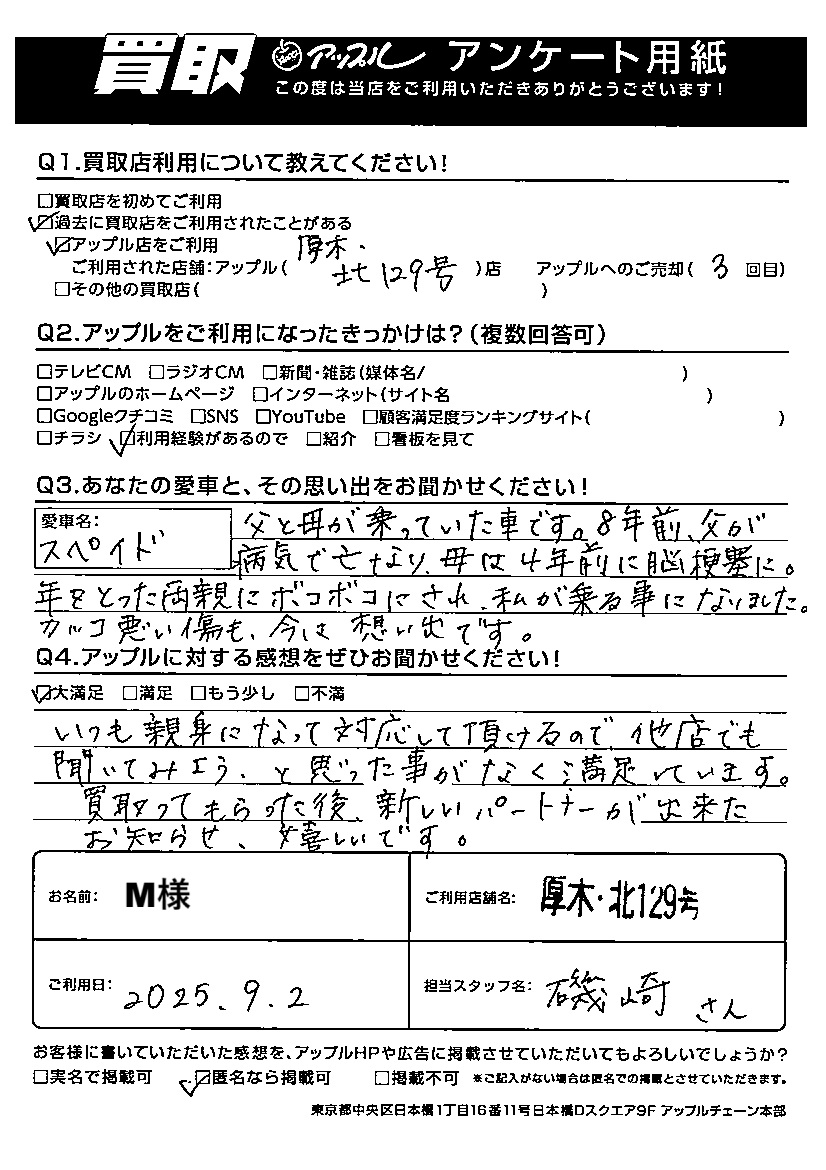 買取 アップル アンケート用紙
この度は当店をご利用いただきありがとうございます!
Q1.買取店利用について教えてください!
□買取店を初めてご利用
☑過去に買取店をご利用されたことがある
☑アップル店をご利用
ご利用された店舗:アップル(厚木・北129号)店 アップルへのご売却(3回目)
□その他の買取店( )
Q2.アップルをご利用になったきっかけは?(複数回答可)
□テレビCM □ラジオCM □新聞・雑誌(媒体名/ )
□アップルのホームページ □インターネット(サイト名 )
□Googleクチコミ □SNS □YouTube □顧客満足度ランキングサイト( )
□チラシ ☑利用経験があるので □紹介 □看板を見て
Q3.あなたの愛車と、その思い出をお聞かせください!
愛車名:
スペイド
父と母が乗っていた車です。8年前、父が
病気で亡なり、母は4年前に脳梗塞に。
年をとった両親にボコボコにされ、私が乗る事になりました。
カッコ悪い傷も、今は想い出です。
Q4.アップルに対する感想をぜひお聞かせください!
☑大満足 □満足 □もう少し □不満
いつも親身になって対応して頂けるので、他店でも
聞いてみよう、と思った事がなく満足しています。
買取ってもらった後、新しいパートナーが出来た
お知らせ、嬉しいです。
お名前: M様
ご利用店舗名: 厚木・北129号
ご利用日: 2025.9.2
担当スタッフ名: 磯崎さん
お客様に書いていただいた感想を、アップルHPや広告に掲載させていただいてもよろしいでしょうか?
□実名で掲載可 ☑匿名なら掲載可 □掲載不可 ※ご記入がない場合は匿名での掲載とさせていただきます。
東京都中央区日本橋1丁目16番11号日本橋Dスクエア9F アップルチェーン本部